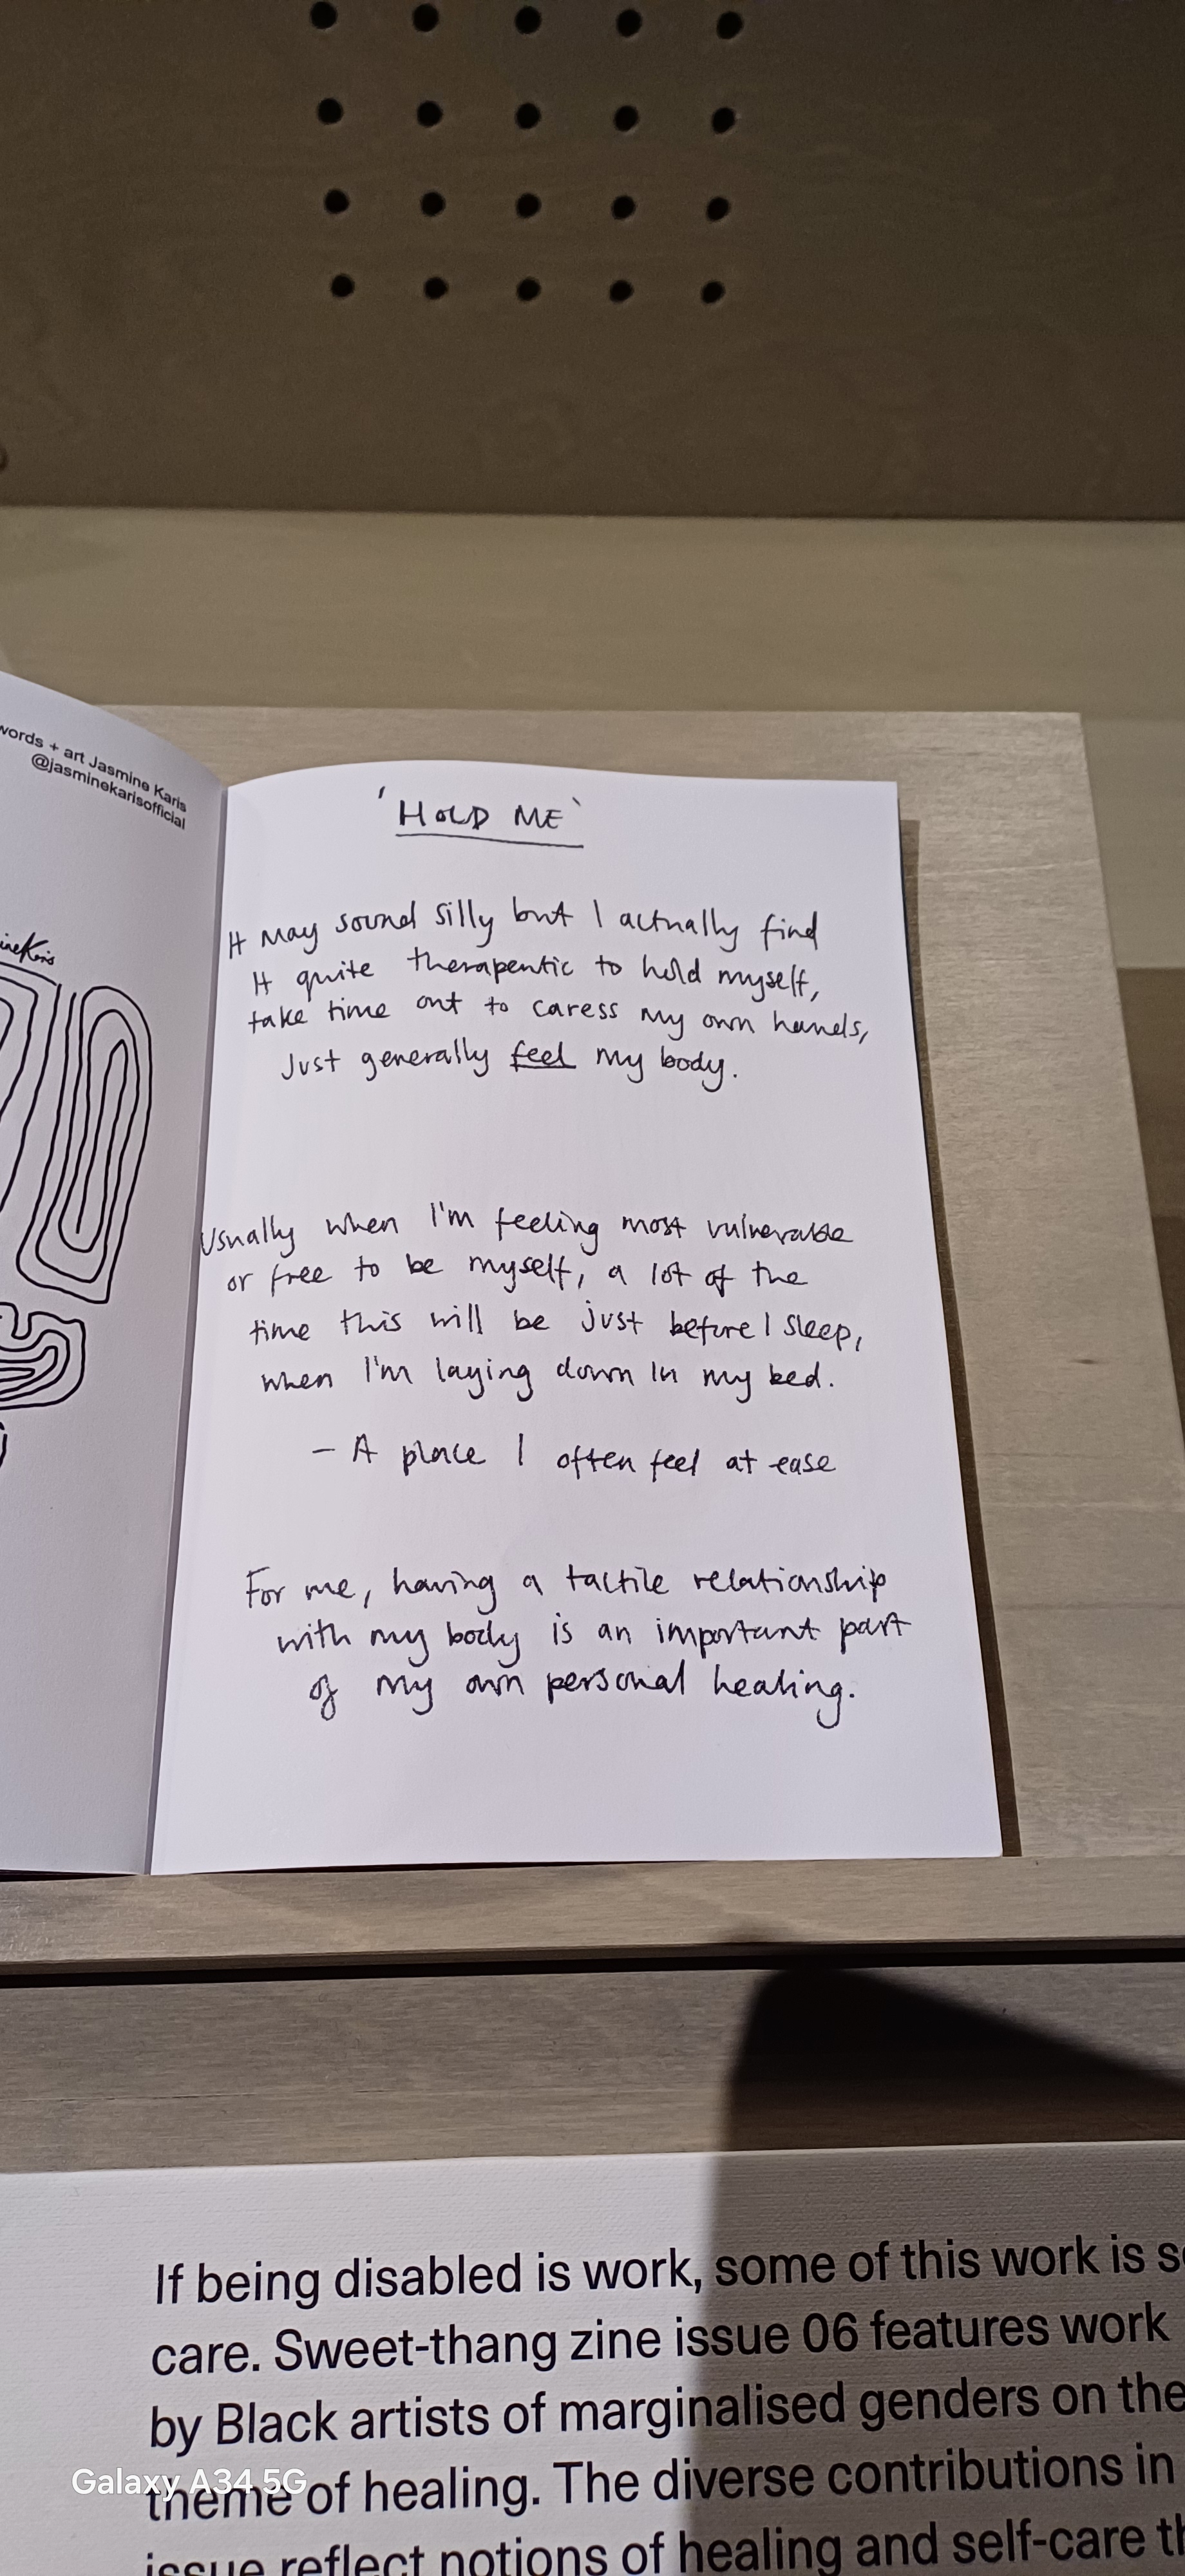 words + art Jasmine Karis
@jasminekarisofficial
'HOLD ME'
It may sound silly but I actually find
It quite therapeutic to hold myself,
take time out to caress my own hands,
Just generally feel my body.
Usually when I'm feeling most vulnerable
or free to be myself, a lot of the
time this will be just before I sleep,
when I'm laying down in my bed.
– A place I often feel at ease
For me, having a tactile relationship
with my body is an important part
of my own personal healing.
If being disabled is work, some of this work is
care. Sweet-thang zine issue 06 features work
by Black artists of marginalised genders on the
theme of healing. The diverse contributions in
issue reflect notions of healing and self-care
Galaxy A34 5G